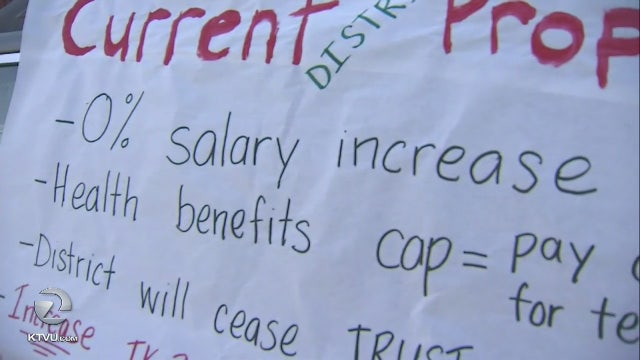 Current Prop
DISTR
-0% salary increase
-Health benefits cap = pay
for te
-District will cease TRUST
-Increase TK-
2
KTVU.COM